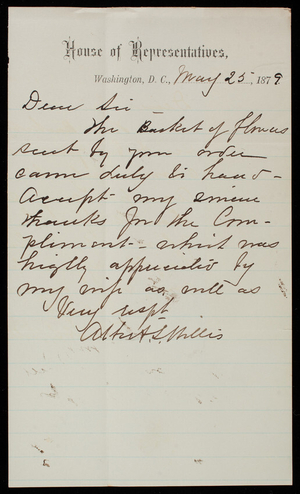 House of Representatives,
Washington, D. C., May 25, 1879
Dear Sir
The Basket of flowers
sent by your order
came duly to hand -
Accept my sincere
thanks for the Com-
pliment - which was
highly appreciated by
my wife as well as
Very respt
Albert S. Willis